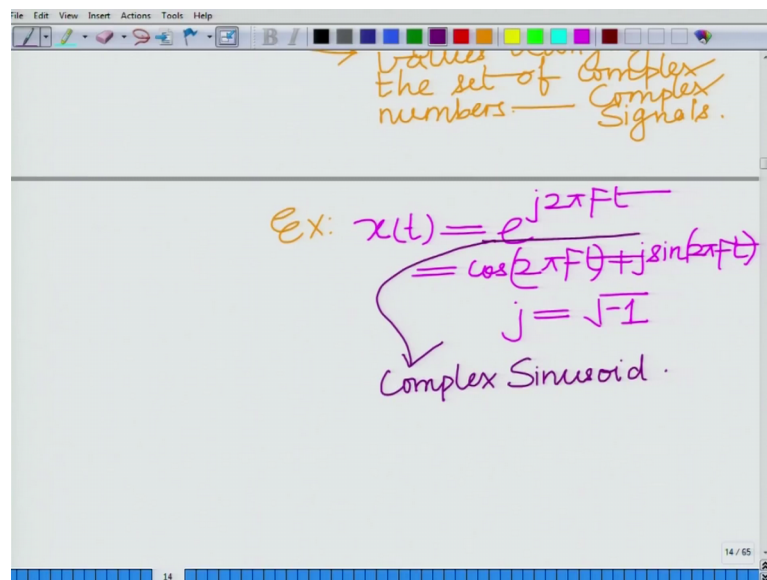 File Edit View Insert Actions Tools Help
B I
the set of complex
numbers. — Complex
Signals.
Ex: x(t) = e^{j2πFt}
= cos(2πFt) + j sin(2πFt)
j = √-1
Complex Sinusoid.
14 / 65
14